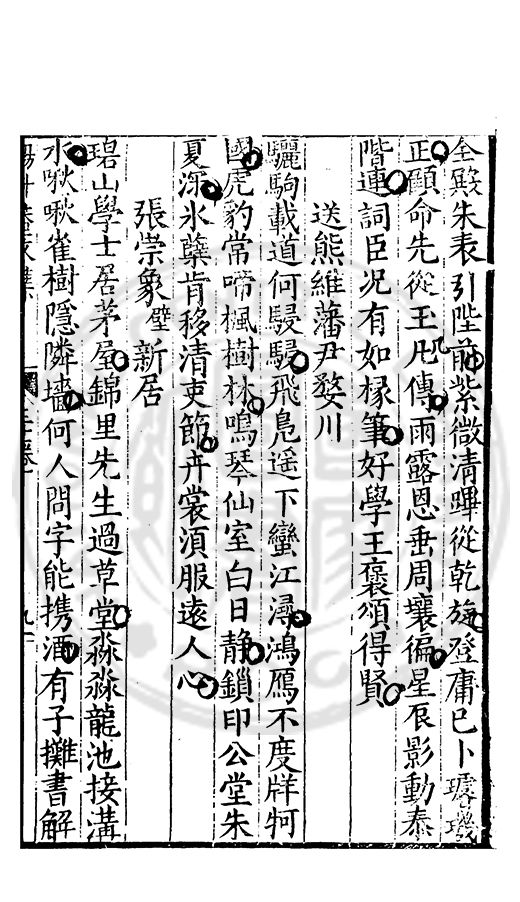 金殿朱表引陛前紫微清嗶從乾旋登庸已卜璿璣
正顧命先從王几傳雨露恩垂周壤徧星辰影動泰
階連詞臣况有如椽筆好學王褒頌得賢
送熊維藩尹婺川
驪駒載道何駸駸飛舄遥下蠻江潯鴻鴈不度牂牁
國虎豹常啼楓樹林鳴琴仙室白日静鎖印公堂朱
夏深氷蘖肯移清吏節卉裳湏服逺人心
張崇象壁新居
碧山學士居茅屋錦里先生過草堂淼淼龍池接溝
水啾啾雀樹隱隣墻何人問字能携酒有子攤書解